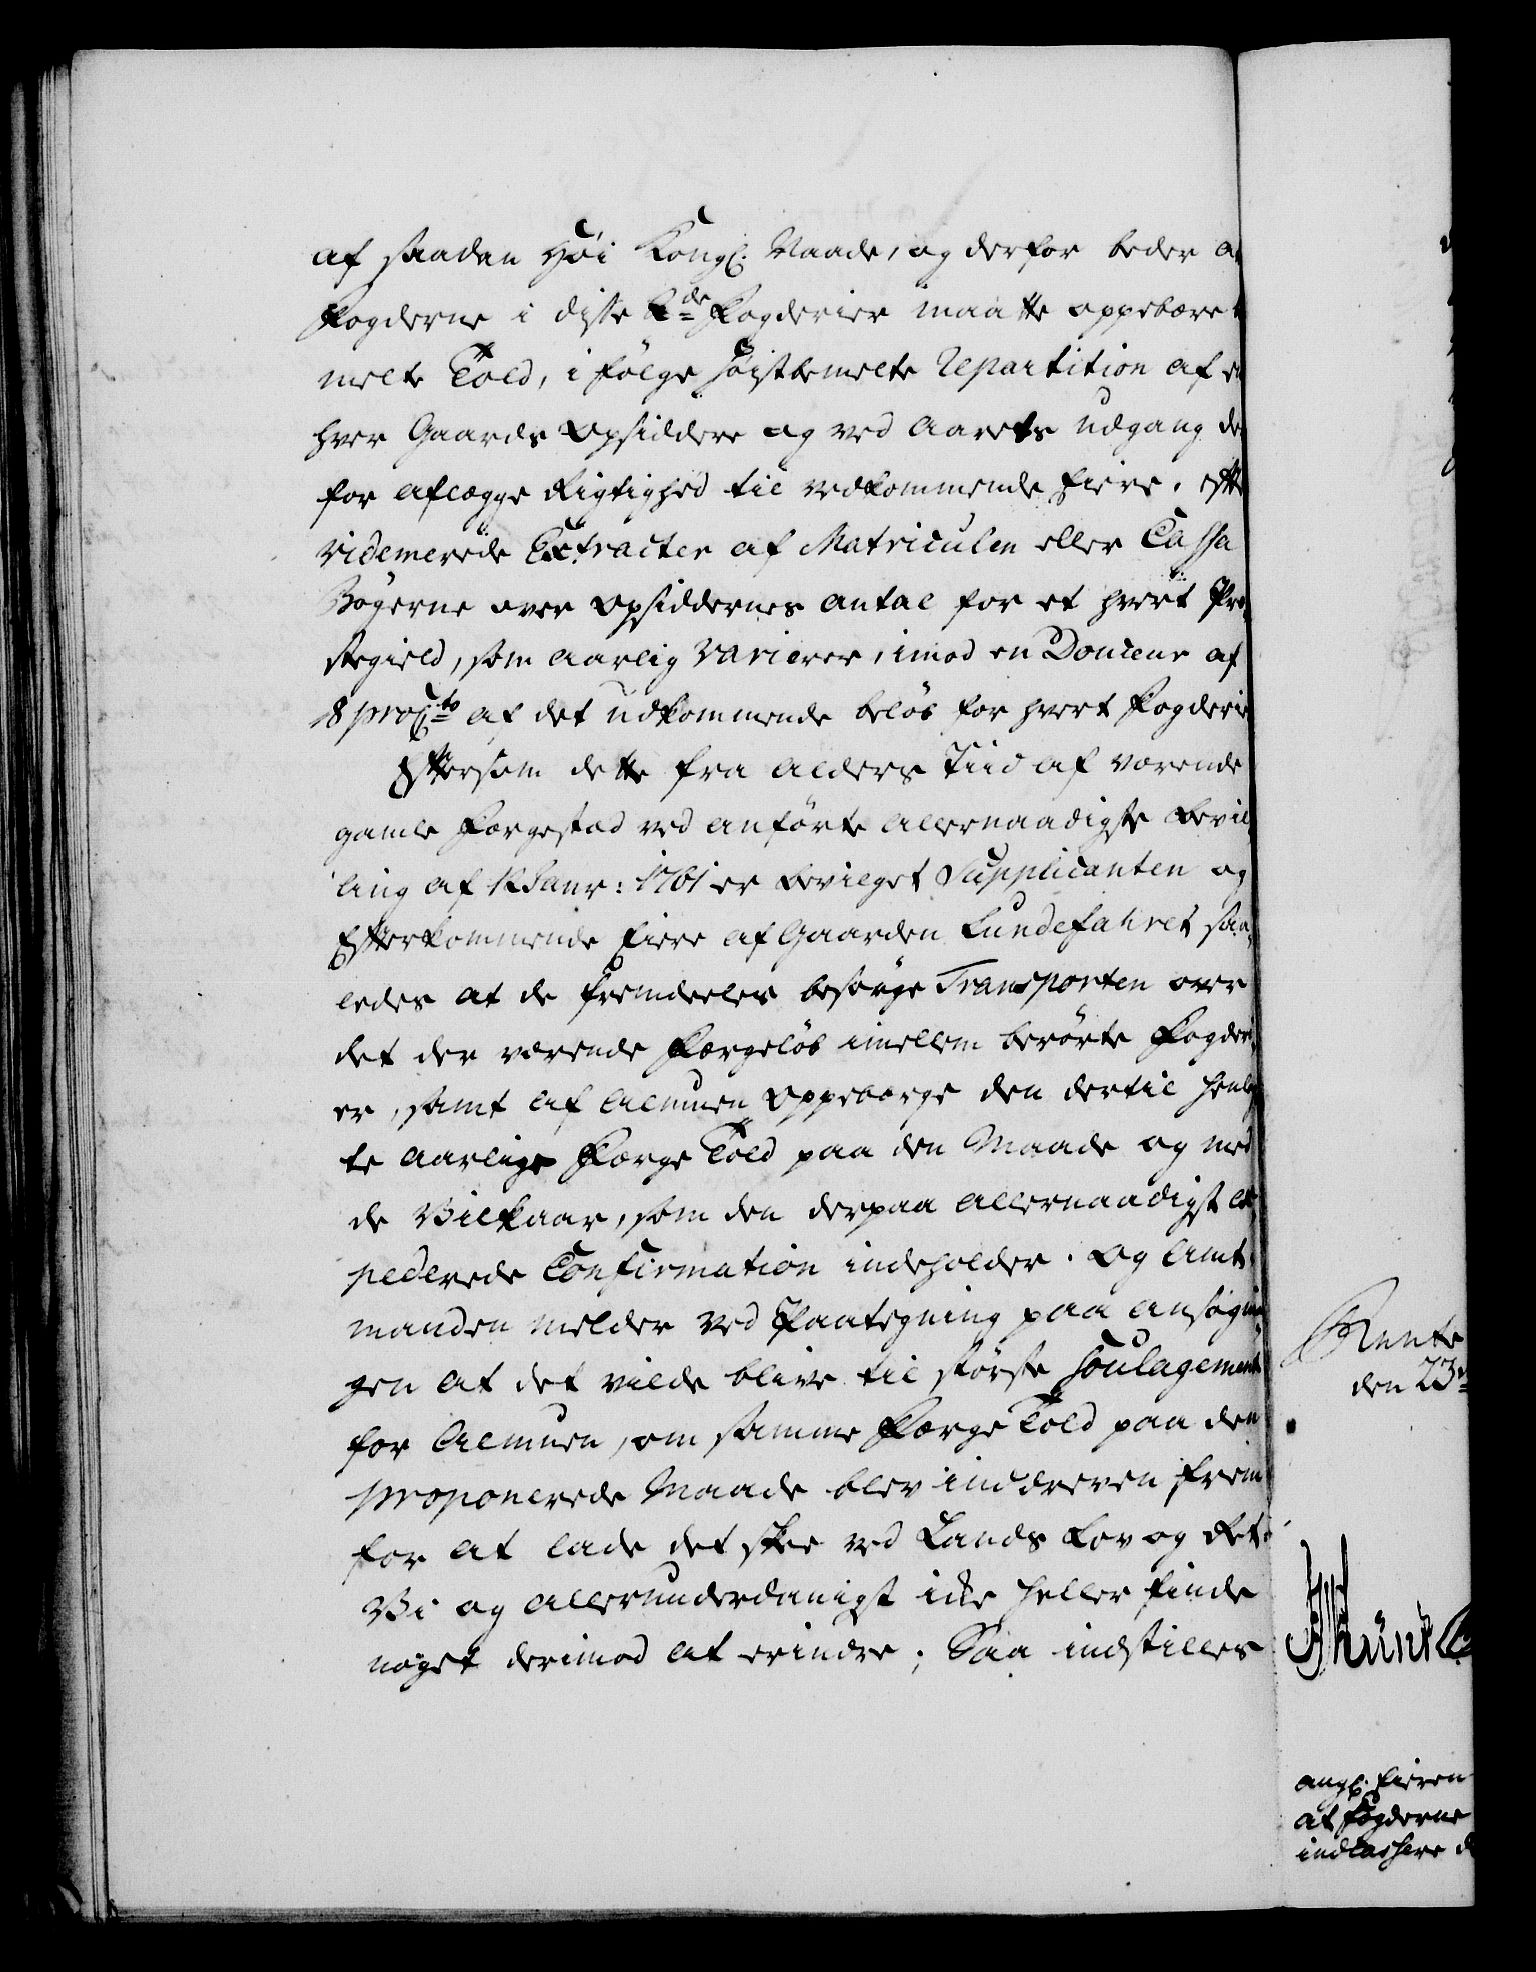 af saadan Høi Kongl. Naade, og derfor beder at
Fogderne i disse 2de Fogderier maatte oppebære
melte Told, i følge høistbemelte Repartition af en
hver Gaards Opsiddere og ved Aarets udgang der
for aflægge Rigtighed til vedkommende Eiere, efter
videmerede Extracter af Matriculen eller Cassa
Bøgerne over Opsiddernes antal for et hvert Præ
stegield, som aarlig varierer, imod en Douceur af
8 pro Cto af det udkommende beløb for hvert Fogderie
Eftersom dette fra Alders Tiid af værende
gamle Færgestæd ved anførte allernaadigste Bevil
ling af 12 Janr: 1761 er bevilget Supplicanten og
Efterkommende Eiere af Gaarden Lundefahret saa
ledes at de fremdeeles besørge Transporten over
det der værende Færgeløb imellem berørte Fogderi
er, samt af Almuen Oppebærge den dertil henlag
te aarlige Færge Told paa den Maade og med
de Vilkaar, som den derpaa allernaadigst ex
pederede Confirmation indeholder. Og Amt
manden melder ved Paategning paa ansøgnin
gen at det vilde blive til største Soulagement
for Almuen, om samme Færge Told paa den
proponerede Maade blev inddreven frem
for at lade det skee ved Lands Lov og Ret
Vi og allerunderdanigst ikke heller finde
noget derimod at erindre; Saa indstilles
Rente
den 23
angl. Eieren
at Fogderne
indcassere